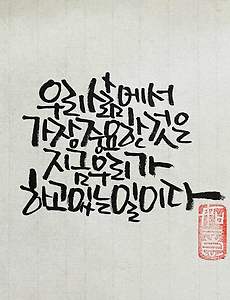 우리 삶에서
가장 중요한 것은
지금 우리가
하고 있는 일이다